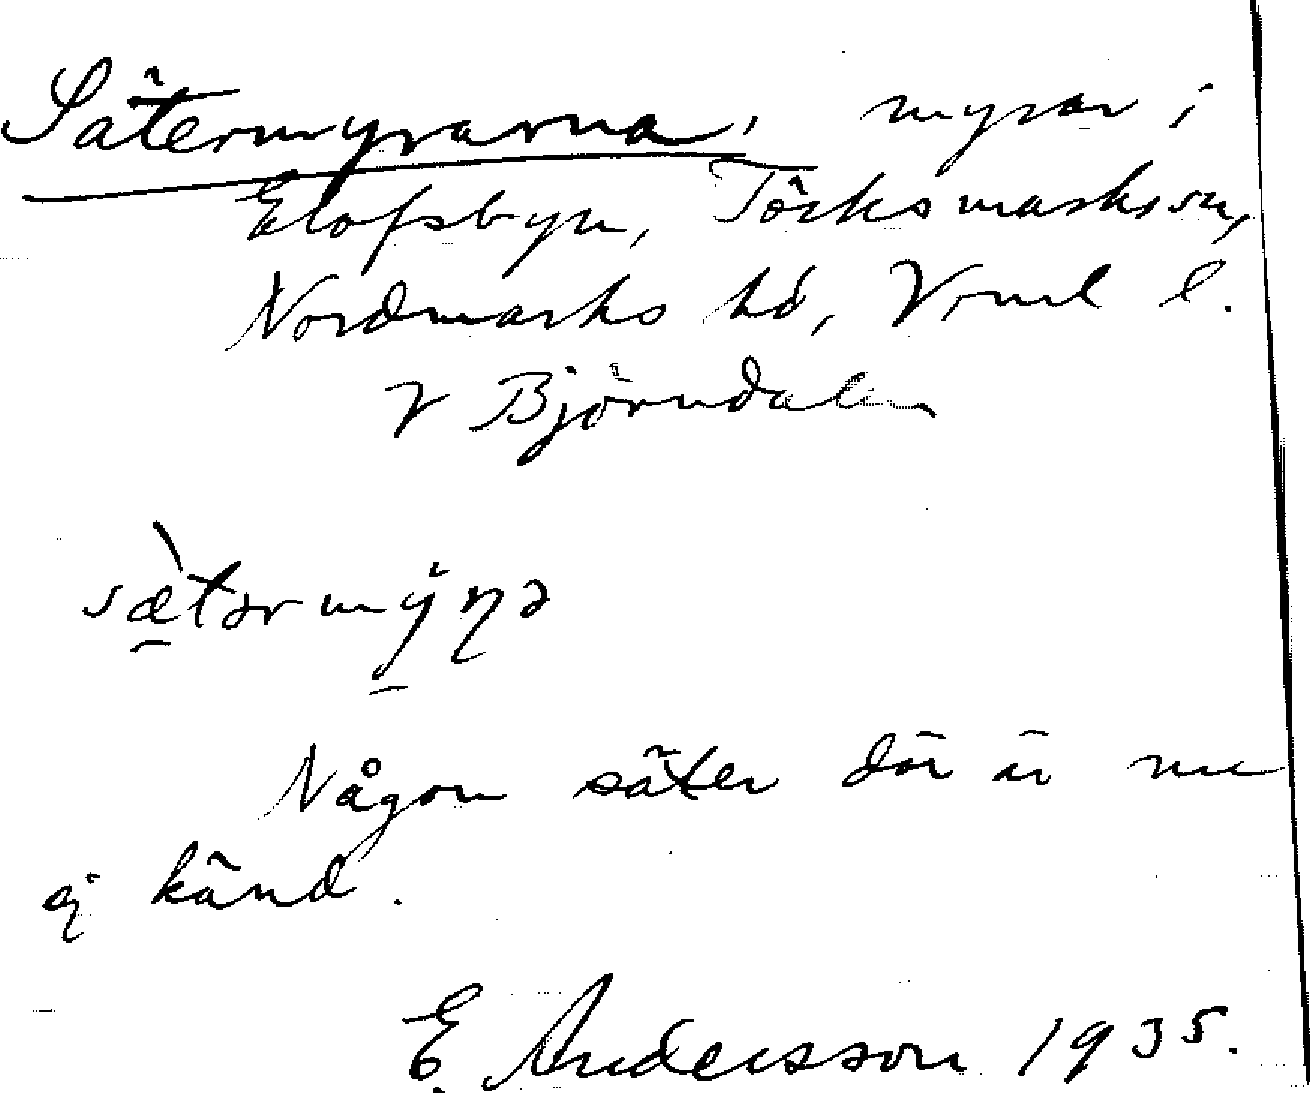 Sätermyrarna, myrar i
Elofsbyn, Töcksmarks sn,
Nordmarks hd, Vrml l.
V Björndalen
sæ̀tərmy̆ɳə
Någon säter där är nu
ej känd.
E. Andersson 1935.